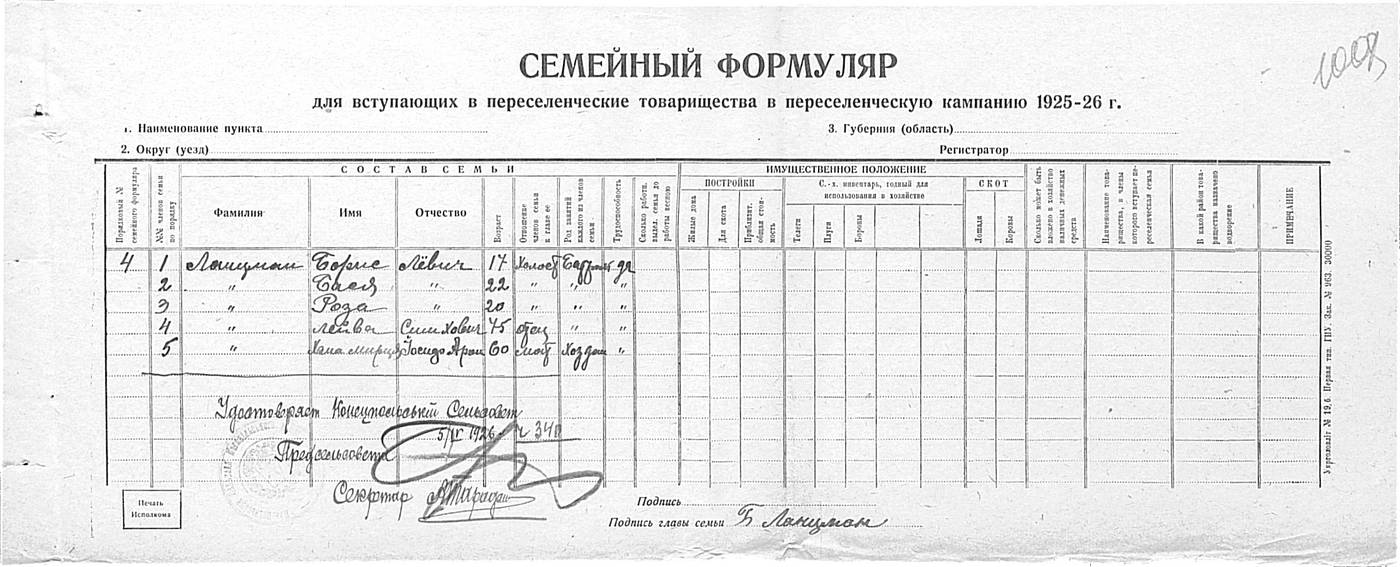 СЕМЕЙНЫЙ ФОРМУЛЯР
для вступающих в переселенческие товарищества в переселенческую кампанию 1925-26 г.
1. Наименование пункта
3. Губерния (область)
2. Округ (уезд)
Регистратор
СОСТАВ СЕМЬИ
ИМУЩЕСТВЕННОЕ ПОЛОЖЕНИЕ
Порядковый № семейного формуляра
№№ членов семьи по порядку
Фамилия
Имя
Отчество
Возраст
Отношение членов семьи к главе ее
Род занятий каждого из членов семьи
Трудоспособность
Сколько работн. выдел. семья до работы весною
ПОСТРОЙКИ
Жилые дома
Для скота
Приблизит. общая стоимость
С.-х. инвентарь, годный для использования в хозяйстве
Телеги
Плуги
Бороны
СКОТ
Лошади
Коровы
Сколько может быть вложено в хозяйство наличных денежных средств
Наименование товарищества, в члены которого вступает переселенческая семья
В какой район товарищества назначено водворение
ПРИМЕЧАНИЕ
4 1 Ланцман Борис Лёвич 17 холост
2 " Бася " 22 " " "
3 " Роза " 20 " " "
4 " Лейва 75 отец " "
5 " 60 "
Удостоверяет Конецпольський Сельсовет
5/IV 1926 340
Предсельсовета
Секретар
Печать Исполкома
Подпись
Подпись главы семьи Б Ланцман
Укрполліт № 19,б. Первая тип. ГПУ. Зак. № 963. 30000